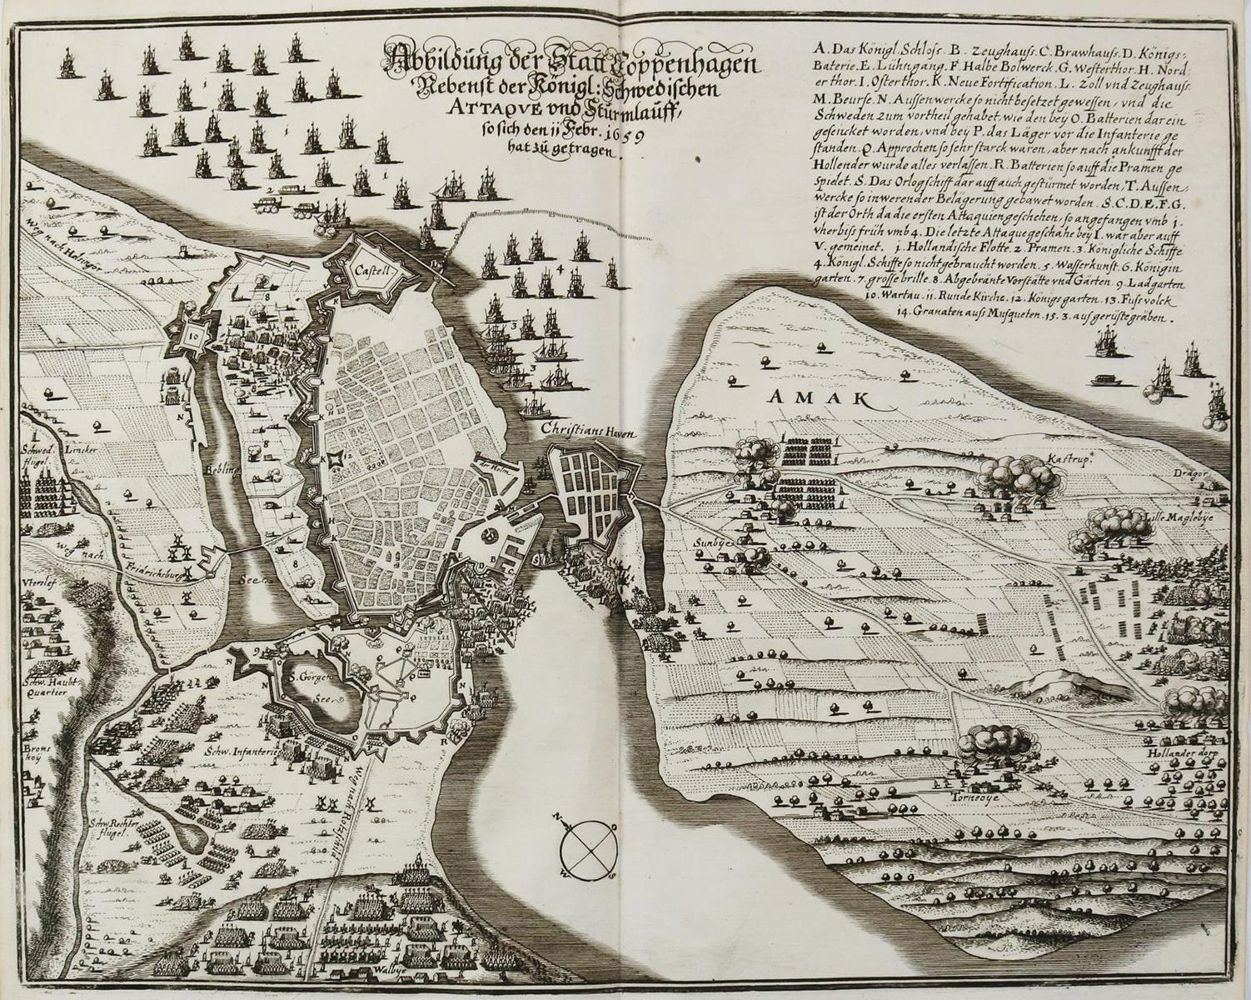 Abbildung der Statt Coppenhagen
Nebenst der Königl: Schwedischen
ATTAQVE vnd Sturmlauff,
so sich den 11 Febr. 1659
hat zu getragen.
A. Das Königl. Schloss. B. Zeughauss. C. Brawhauss. D. Königs-
Baterie. E. Lühngang. F. Halbe Bolwerck. G. Westerthor. H. Nord
erthor. I. Osterthor. K. Neue Fortification. L. Zoll vnd Zeughauss.
M. Beurse. N. Aussenwercke so nicht besetzet gewessen, vnd die
Schweden zum vortheil gehabet, wie den bey O. Batterien darein
gesencket worden, vnd bey P. das Läger vor die Infanterie ge
standen. Q. Approchen so sehr starck waren, aber nach ankunfft der
Hollender wurde alles verlassen. R. Batterien so auff die Pramen ge
spielet. S. Das Orlogschiff darauff auch gesturmet worden, T. Aussen
wercke so in werender Belägerung gebawet worden. S. C. D. E. F. G.
ist der Orth da die ersten Attaquien geschehen, so angefangen vmb 1.
vhr biss früh vmb 4. Die letzte Attaque geschahe bey I. war aber auff
V. gemeinet. 1. Hollandische Flotte. 2. Pramen. 3. Königliche Schiffe
4. Königl. Schiffe so nicht gebraucht worden. 5. Wasserkunst. 6. Königin
garten. 7. grosse brille. 8. Abgebrante Vorstätte vnd Gärten. 9. Ladgarten
10. Wartau. 11. Runde Kirche. 12. Königs garten. 13. Fussvolck
14. Granaten auss Musqueten. 15. 3. aussgerüste gräben.
Castell
Weg nach Helsingör
10
8
8
8
8
4
3
Christians Haven
der Holm
AMAK
Kastrup.
Dragor
Lille Maglebye
Sunbye
Schwed. Lincker
flügel
Weg nach
Fridrichsburg
Vterslef
Peblinge
See
S. Görgen
See
Schw. Haubt-
Quartier
Schw. Infanterie
Brons
höy
Schw. Rechter
flügel.
Weg nach Rotschilt
Walbye
Hollander dorp
Torneoye